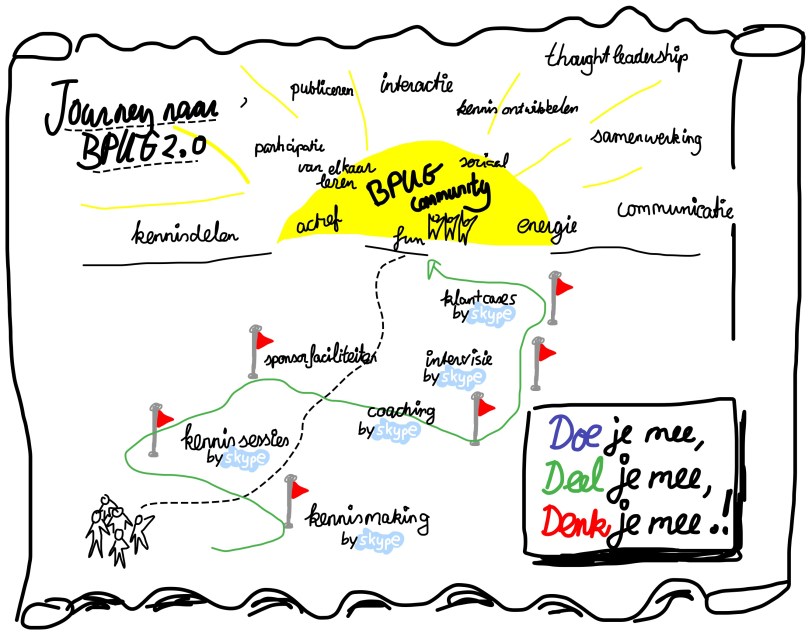 Journey naar
BPUG 2.0
publiceren
interactie
thought leadership
kennis ontwikkelen
samenwerking
participatie
van elkaar
leren
BPUG
community
sociaal
communicatie
kennisdelen
actief
fun
energie
klantcases
by skype
sponsorfaciliteiten
intervisie
by skype
coaching
by skype
kennissessies
by skype
kennismaking
by skype
Doe je mee,
Deel je mee,
Denk je mee ..!